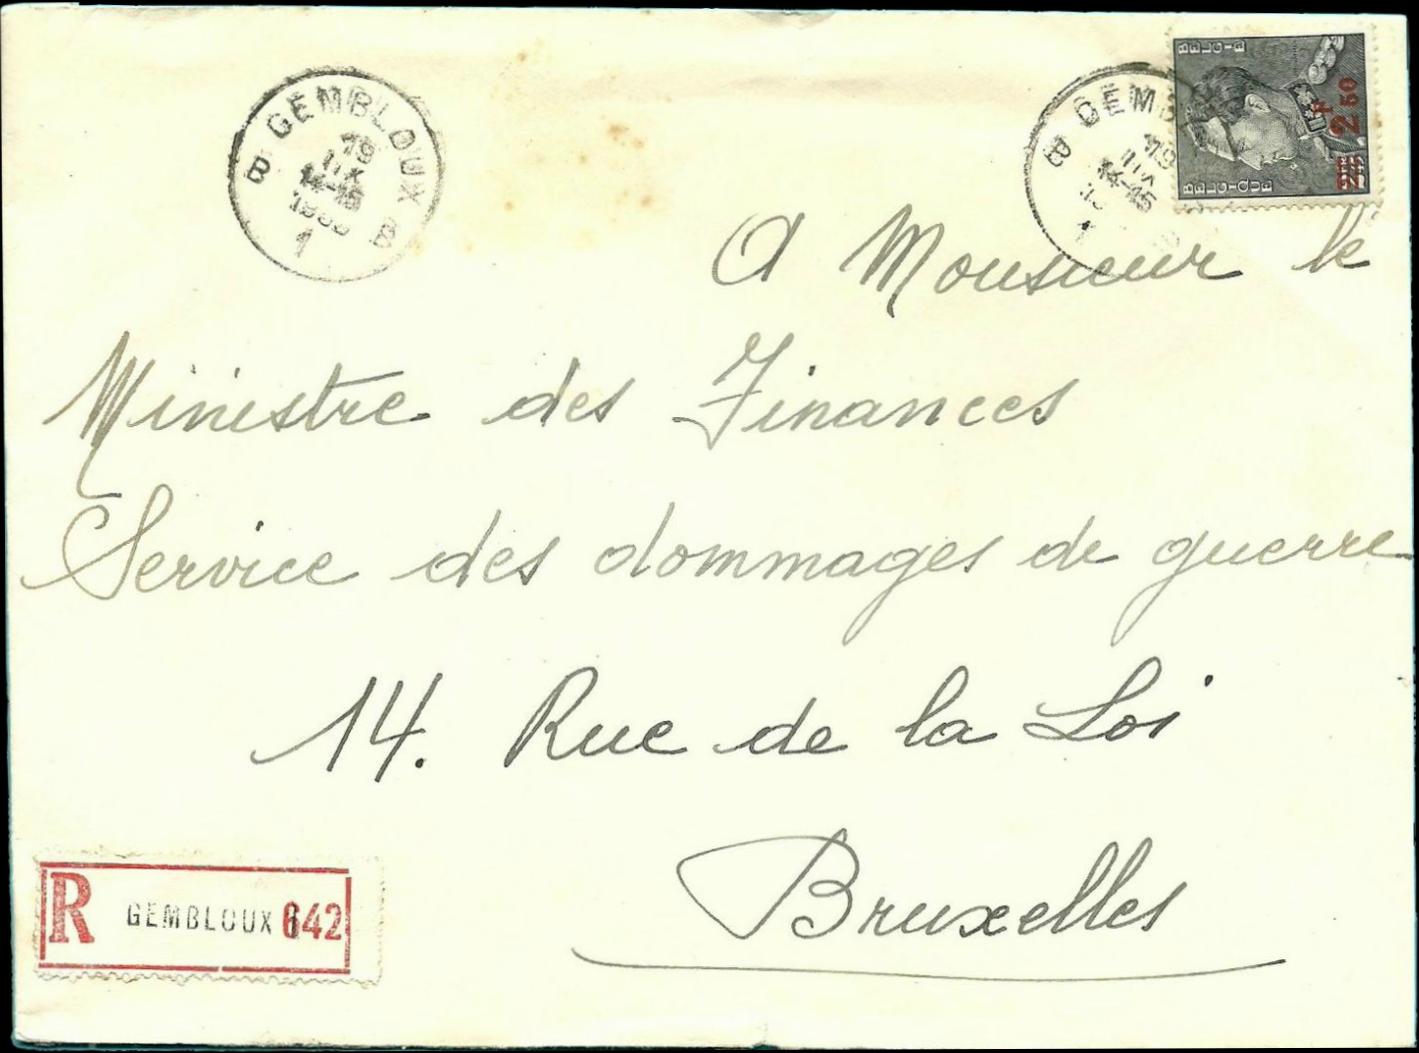 B GEMBLOUX B
19
14-15
1
B GEMB
19
14-15
1
BELGIE
BELGIQUE
2F50
A Monsieur le
Ministre des Finances
Service des dommages de guerre
14. Rue de la Loi
Bruxelles
R GEMBLOUX 1 642